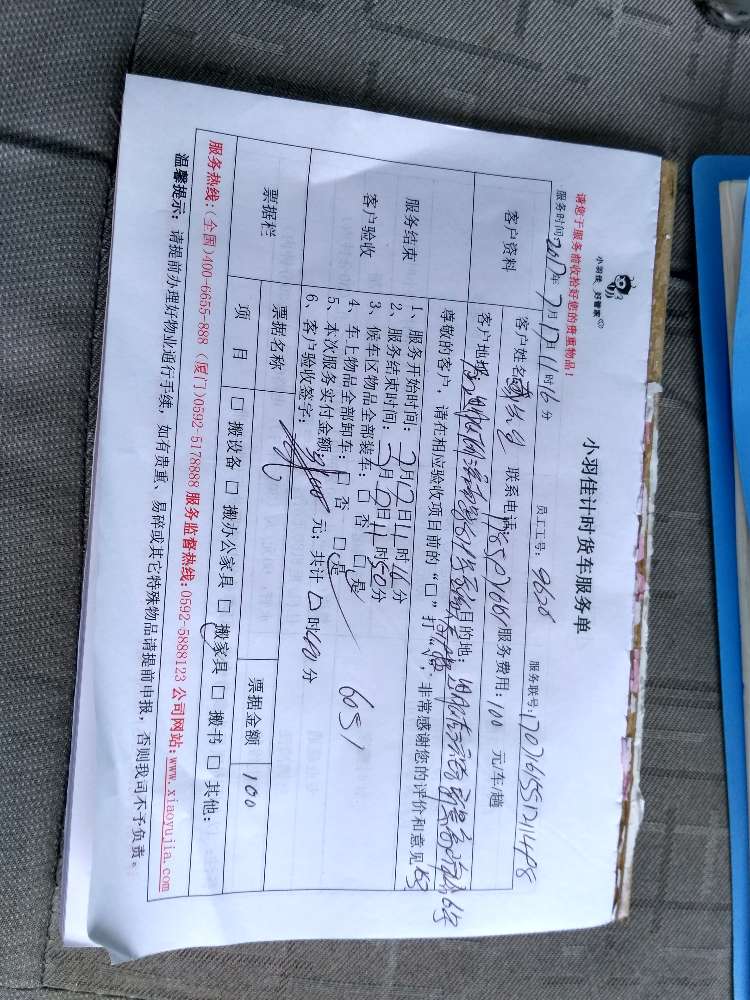 请您于服务前收拾好您的贵重物品！
小羽佳 好管家
小羽佳计时货车服务单
服务时间：2017年7月17日11时16分 员工工号：9626 服务联号：
客户资料
客户姓名 联系电话： 服务费用：100 元/车/趟
客户地址： 目的地：
尊敬的客户，请在相应验收项目前的“□”打“√”，非常感谢您的评价和意见
服务结束
客户验收
1、服务开始时间：7月17日11时16分
2、服务结束时间：7月17日11时50分
3、候车区物品全部装车：□否 □是
4、车上物品全部卸车：□否 □是
5、本次服务实付金额： 元；共计0时40分
6、客户验收签字：
6051
票据栏
票据名称 票据金额 100
项 目 □搬设备 □搬办公家具 □搬家具 □搬书 □其他：
服务热线：(全国)400-6655-888 (厦门)0592-5178888 服务监督热线：0592-5888123 公司网站：www.xiaoyujia.com
温馨提示：请提前办理好物业通行手续，如有贵重、易碎或其它特殊物品请提前申报，否则我司不予负责。